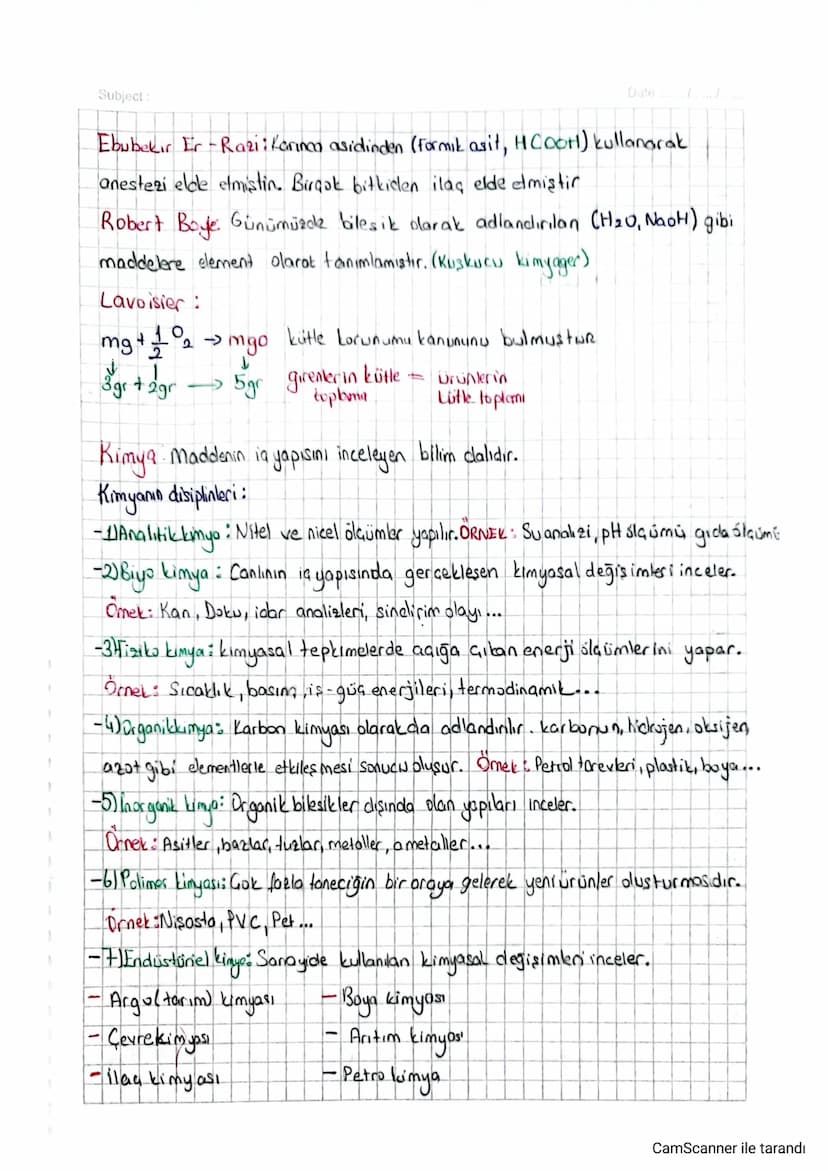 Subject :
Date ..... / ..... / .....
Ebubekir Er-Razi: Karınca asidinden (Formik asit, HCOOH) kullanarak
anestezi elde etmiştin. Birçok bitkiden ilaç elde etmiştir
Robert Boyle: Günümüzde bileşik olarak adlandırılan (H2O, NaOH) gibi
maddelere element olarak tanımlamıştır. (Kuşkucu kimyager)
Lavoisier :
mg + 1/2 O2 → mgo kütle korunumu kanununu bulmuştur
3gr + 2gr → 5gr girenlerin kütle = ürünlerin
toplamı kütle toplamı
Kimya: Maddenin iç yapısını inceleyen bilim dalıdır.
Kimyanın disiplinleri :
-1)Analitik kimya : Nitel ve nicel ölçümler yapılır. ÖRNEK : Su analizi, pH ölçümü gıda ölçümü
-2)Biyo kimya : Canlının iç yapısında gerçekleşen kimyasal değişimleri inceler.
Örnek : Kan, Doku, idrar analizleri, sindirim olayı ...
-3)Fiziko kimya : kimyasal tepkimelerde açığa çıkan enerji ölçümlerini yapar.
Örnek : Sıcaklık, basınç, iş-güç enerjileri, termodinamik...
-4)Organik kimya : Karbon kimyası olarakda adlandırılır. karbonun, hidrojen, oksijen,
azot gibi elementlerle etkileşmesi sonucu oluşur. Örnek : Petrol türevleri, plastik, boya...
-5)İnorganik kimya : Organik bileşikler dışında olan yapıları inceler.
Örnek : Asitler, bazlar, tuzlar, metaller, ametaller...
-6)Polimer kimyası : Çok fazla taneciğin bir araya gelerek yeni ürünler oluşturmasıdır.
Örnek : Nişasta, PVC, Pet ...
-7)Endüstüriel kimya : Sanayide kullanılan kimyasal değişimleri inceler.
- Argo (tarım) kimyası - Boya kimyası
- Çevre kimyası - Arıtım kimyası
- ilaç kimyası - Petro kimya
CamScanner ile tarandı